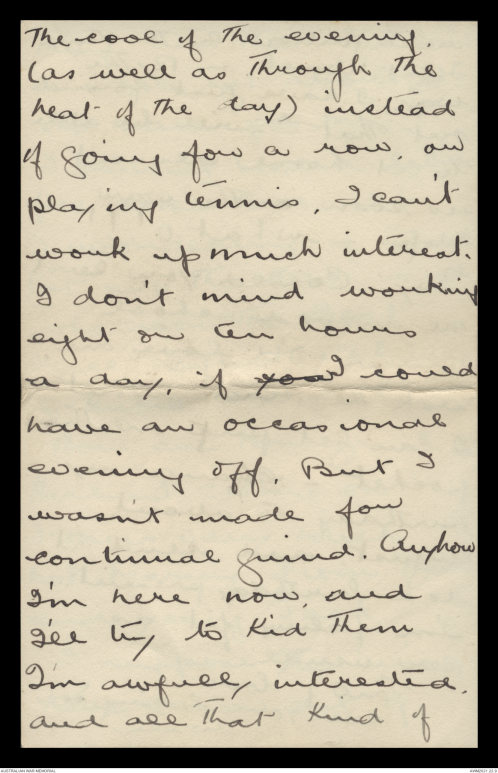 the cool of the evening,
(as well as through the
heat of the day) instead
of going for a row, or
playing tennis, I can't
work up much interest.
I don't mind working
eight or ten hours
a day, if you I could
have an occasional
evening off. But I
wasn't made for
continual grind. Anyhow
I'm here now, and
I'll try to kid them
I'm awfully interested,
and all that kind of
AUSTRALIAN WAR MEMORIAL